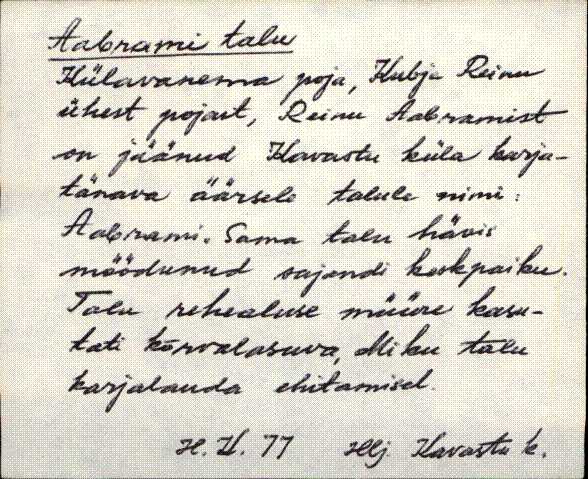 Aabrami talu
Külavanema poja, Kubja Reinu
ühest pojast, Reinu Aabramist
on jäänud Kavastu küla karja-
tänava äärsele talule nimi:
Aabrami. Sama talu hävis
möödunud sajandi keskpaiku.
Talu rehealuse müüre kasu-
tati kõrvalasuva, Miku talu
karjalauda ehitamisel.
H. K. 77 Hlj. Kavastu k.